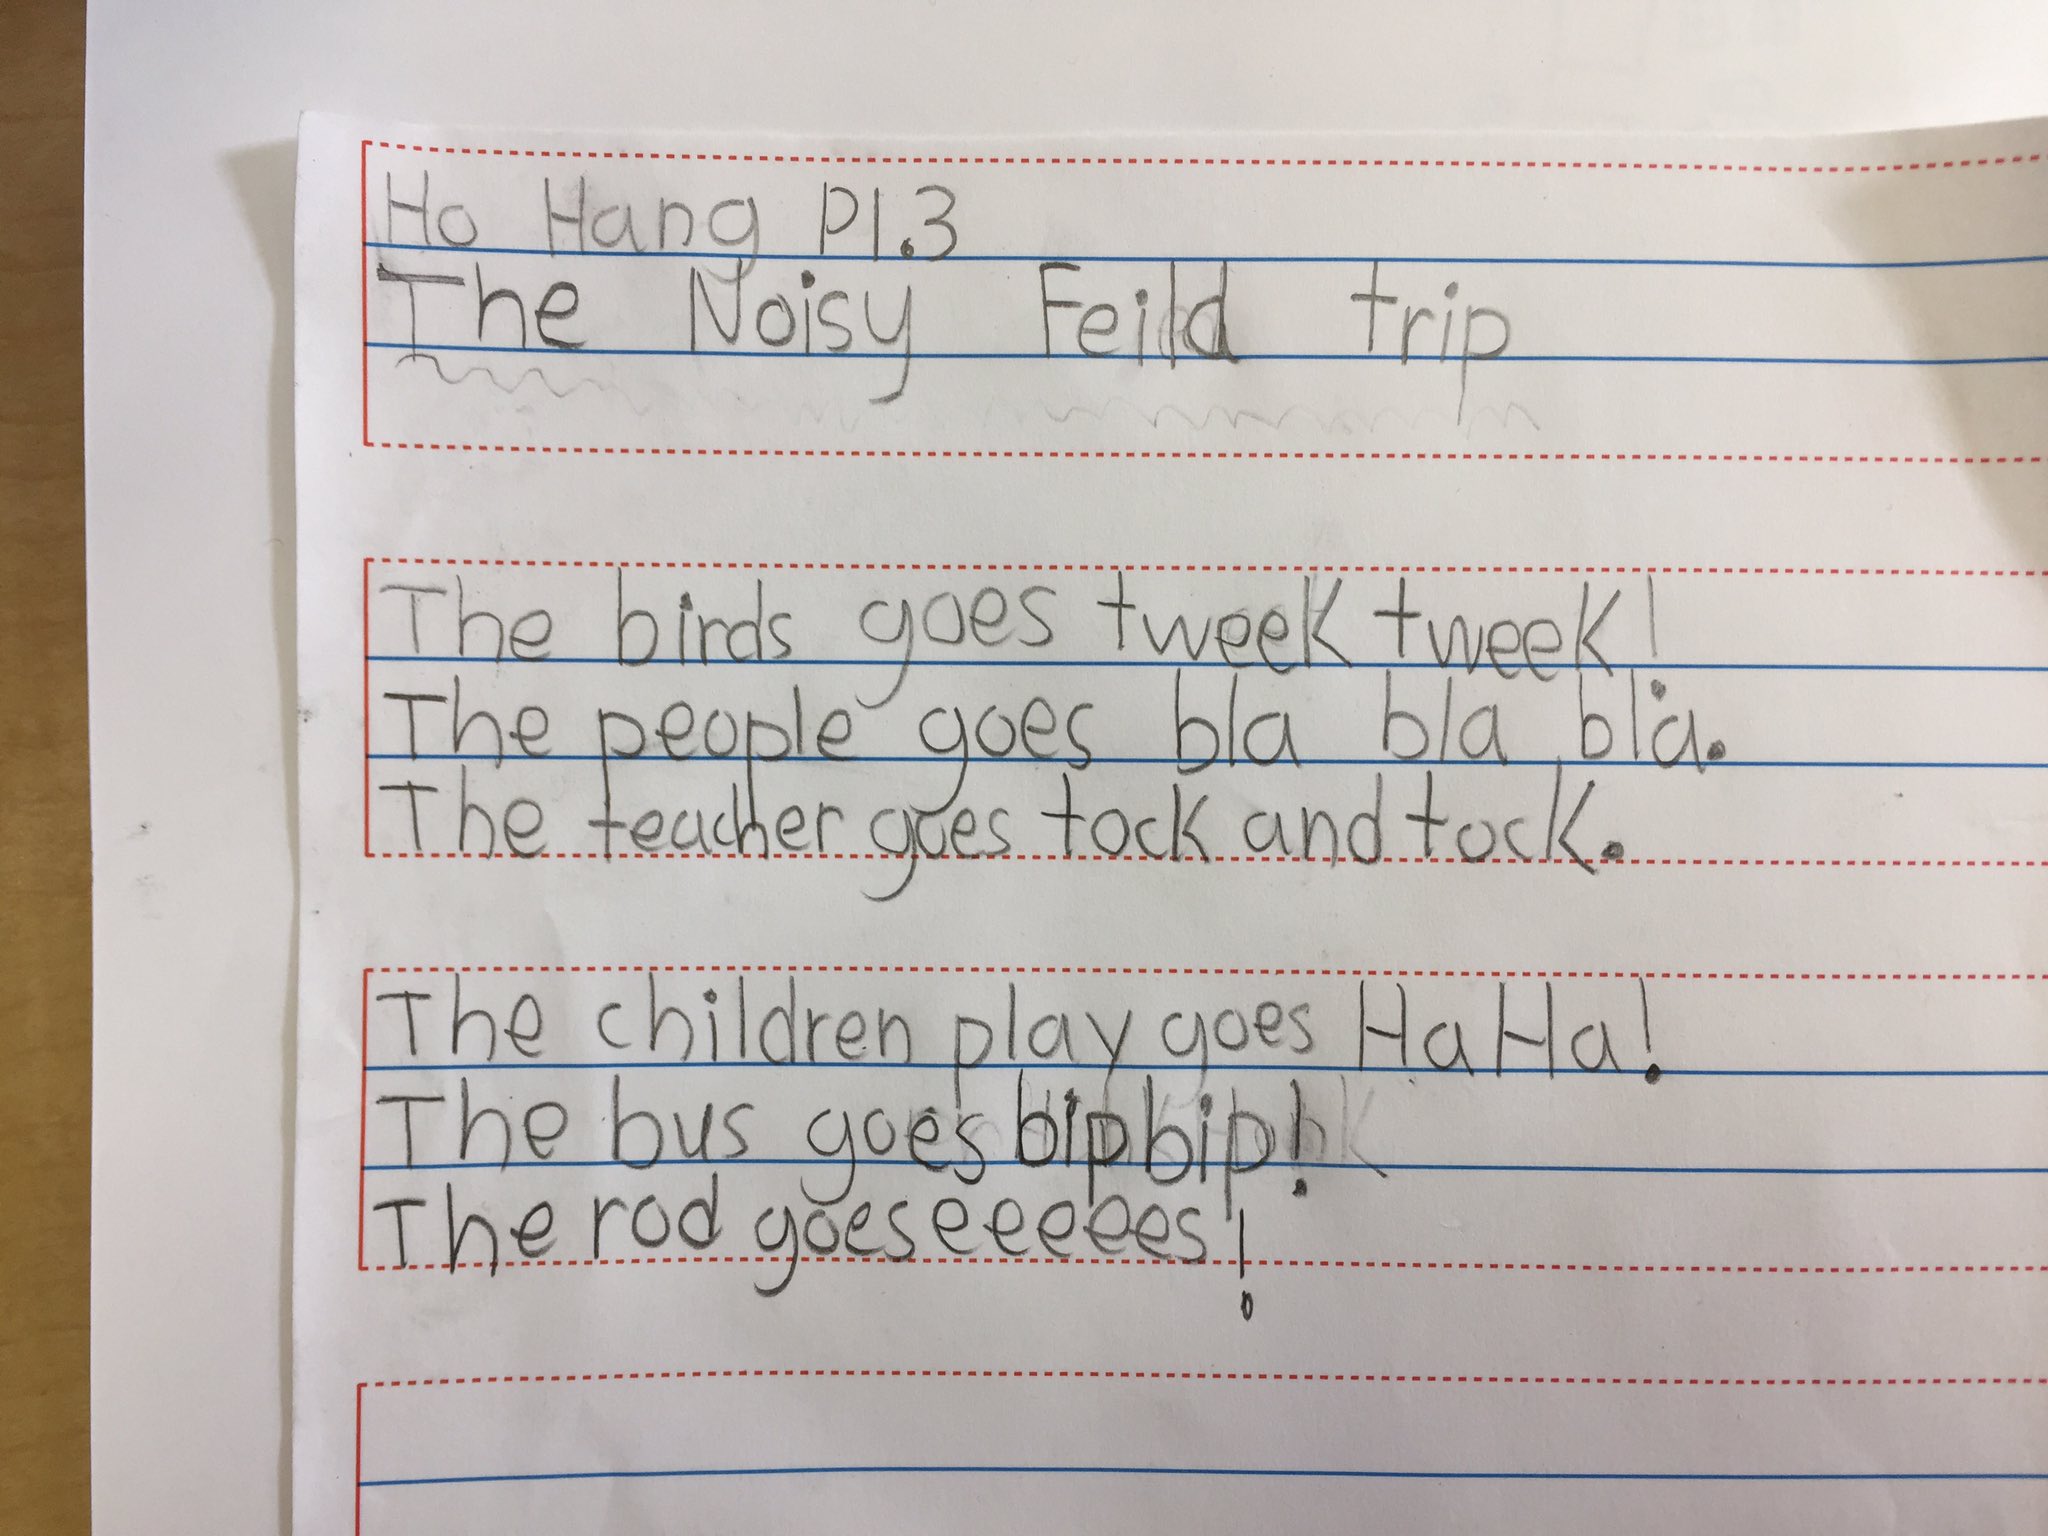 Ho Hang P1.3
The Noisy Feild trip
The birds goes tweek tweek!
The people goes bla bla bla.
The teacher goes tock and tock.
The children play goes Ha Ha!
The bus goes bip bip!
The rod goes eeeees!